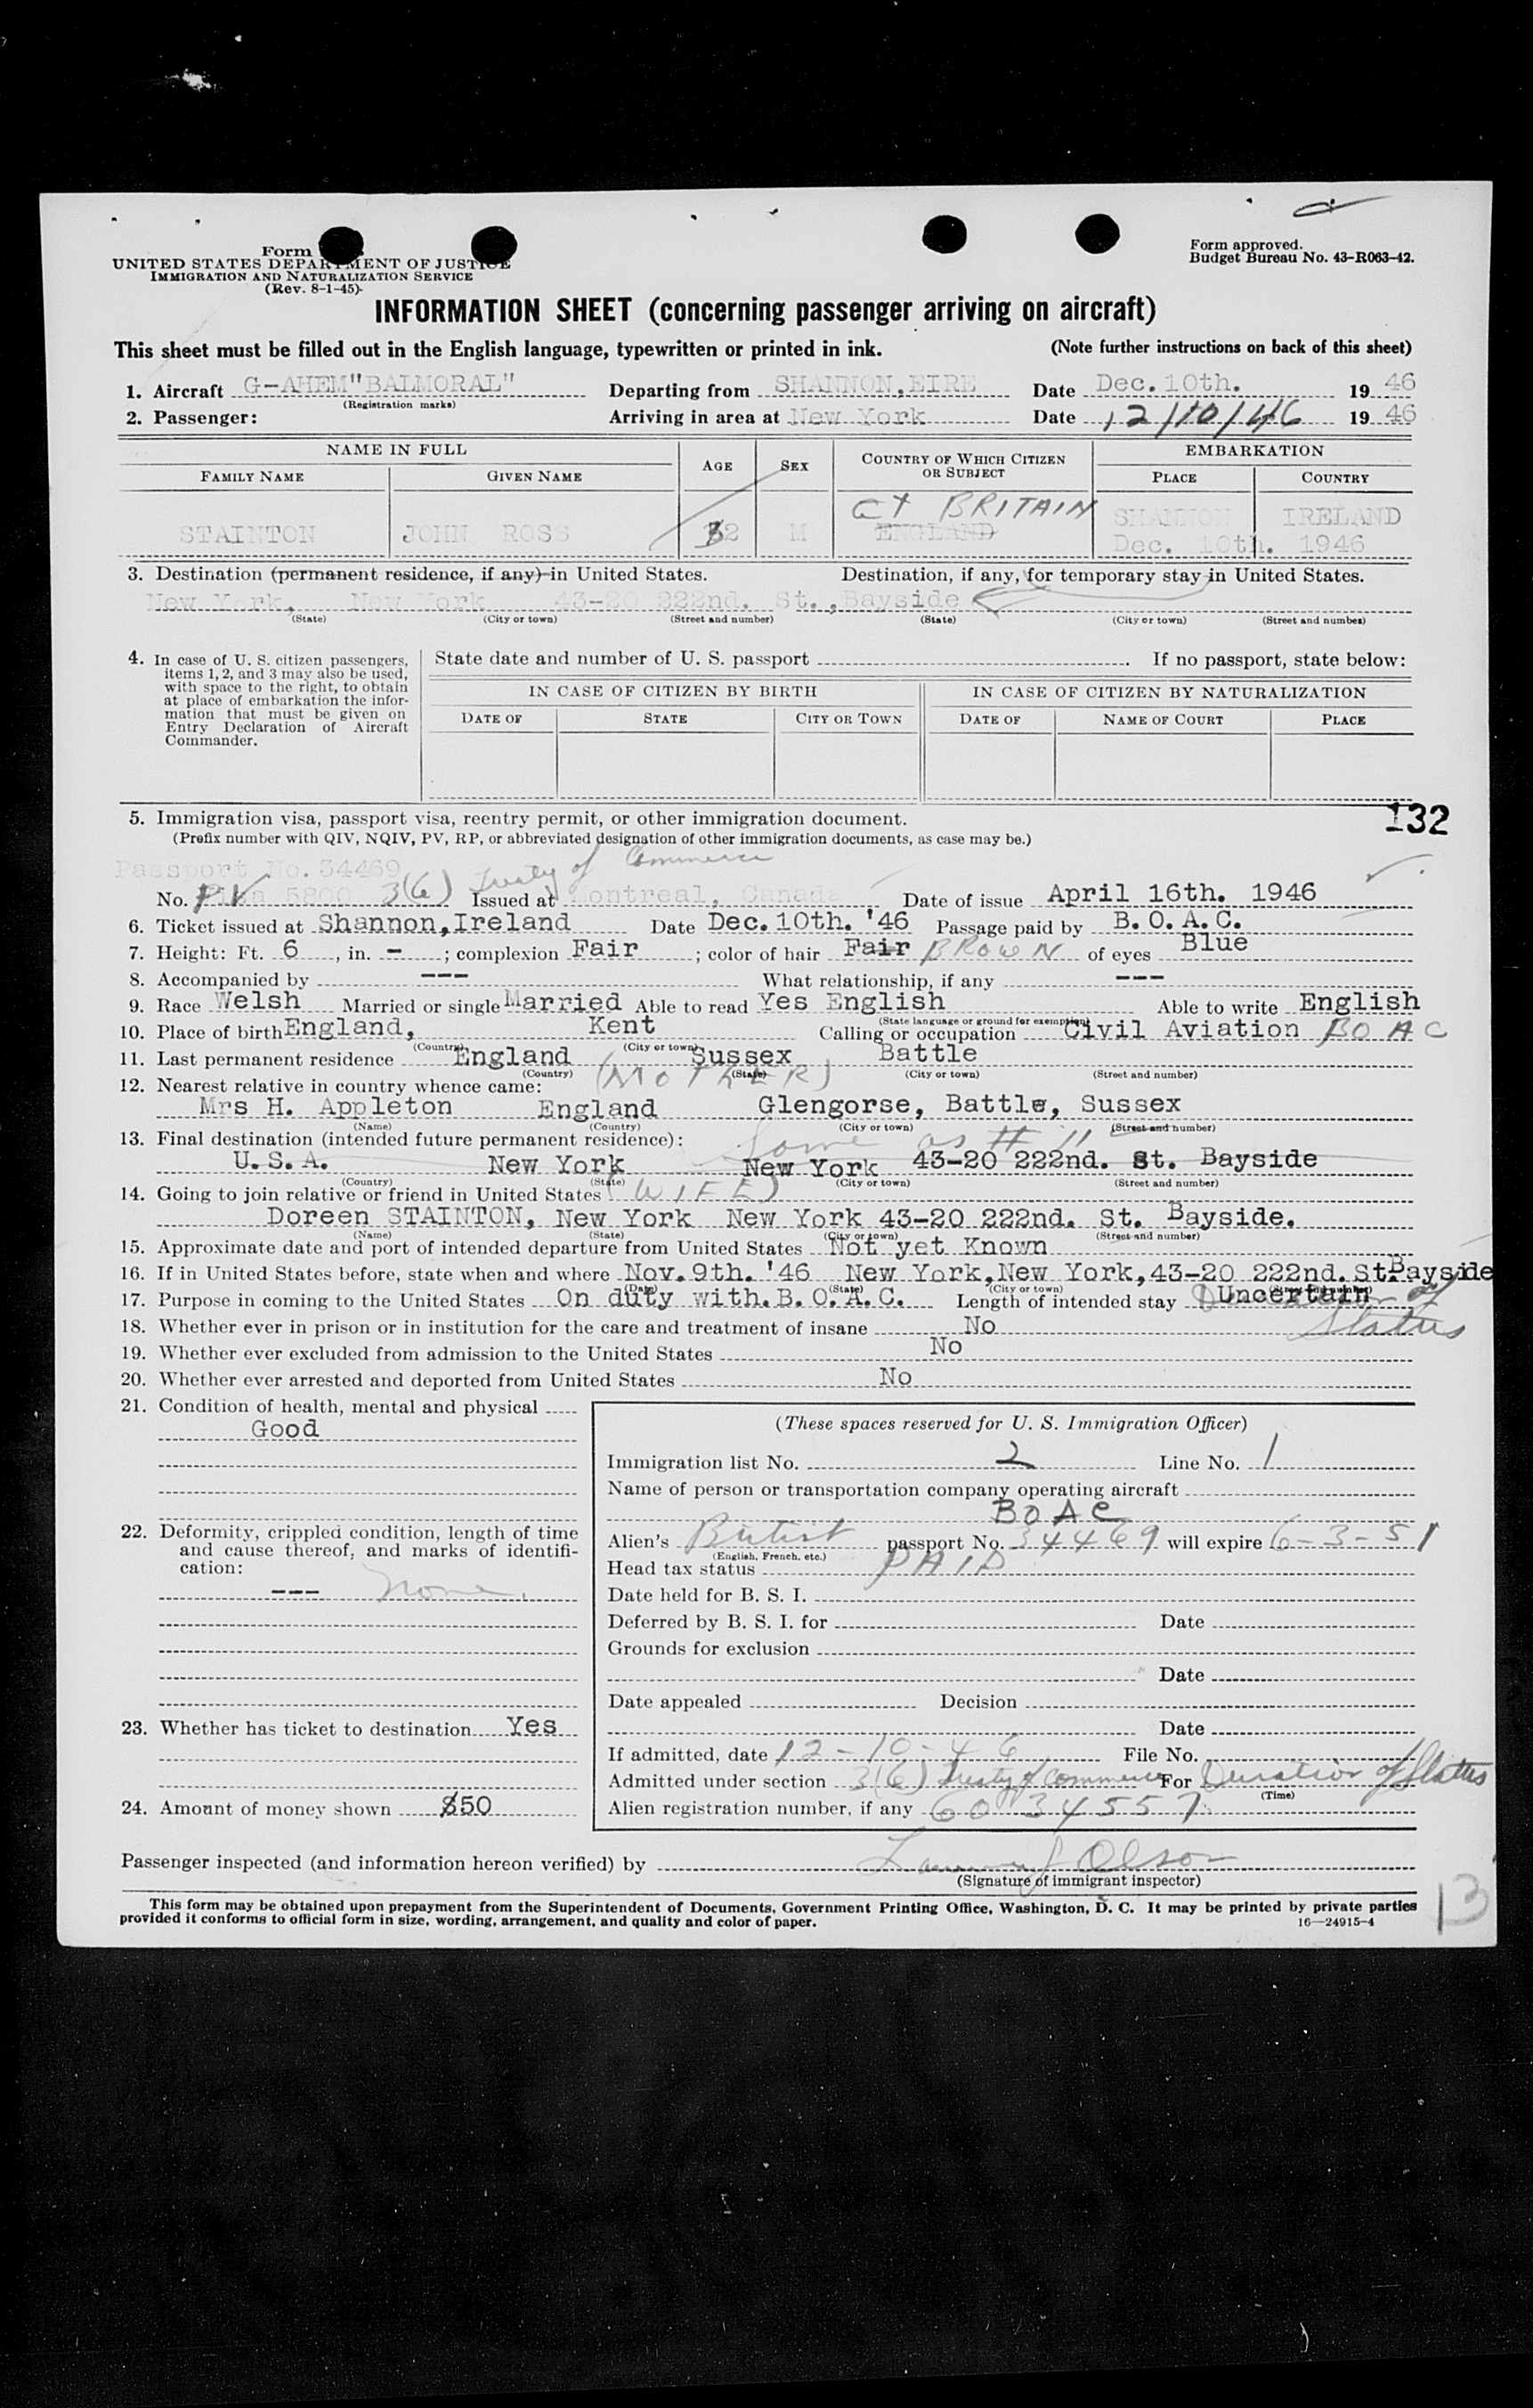 Form
UNITED STATES DEPARTMENT OF JUSTICE
IMMIGRATION AND NATURALIZATION SERVICE
(Rev. 8-1-45)
Form approved.
Budget Bureau No. 43-R063-42.
INFORMATION SHEET (concerning passenger arriving on aircraft)
This sheet must be filled out in the English language, typewritten or printed in ink. (Note further instructions on back of this sheet)
1. Aircraft G-AHEM "BALMORAL" Departing from SHANNON, EIRE Date Dec. 10th. 19 46
(Registration marks)
2. Passenger: Arriving in area at New York Date 12/10/46 19 46
NAME IN FULL AGE SEX COUNTRY OF WHICH CITIZEN OR SUBJECT EMBARKATION
FAMILY NAME GIVEN NAME PLACE COUNTRY
GT BRITAIN
STAINTON JOHN ROSS 32 M ENGLAND SHANNON IRELAND
Dec. 10th. 1946
3. Destination (permanent residence, if any) in United States. Destination, if any, for temporary stay in United States.
New York, New York 43-20 222nd. St., Bayside
(State) (City or town) (Street and number) (State) (City or town) (Street and number)
4. In case of U. S. citizen passengers, items 1, 2, and 3 may also be used, with space to the right, to obtain at place of embarkation the information that must be given on Entry Declaration of Aircraft Commander.
State date and number of U. S. passport If no passport, state below:
IN CASE OF CITIZEN BY BIRTH IN CASE OF CITIZEN BY NATURALIZATION
DATE OF STATE CITY OR TOWN DATE OF NAME OF COURT PLACE
132
5. Immigration visa, passport visa, reentry permit, or other immigration document.
(Prefix number with QIV, NQIV, PV, RP, or abbreviated designation of other immigration documents, as case may be.)
Passport No. 34469 Treaty of Commerce
No. PV Visa 5800 3(6) Issued at Montreal, Canada Date of issue April 16th. 1946
6. Ticket issued at Shannon, Ireland Date Dec. 10th. '46 Passage paid by B. O. A. C.
7. Height: Ft. 6, in. -; complexion Fair; color of hair Fair BROWN of eyes Blue
8. Accompanied by --- What relationship, if any ---
9. Race Welsh Married or single Married Able to read Yes English Able to write English
(State language or ground for exemption)
10. Place of birth England, Kent Calling or occupation Civil Aviation BOAC
(Country) (City or town)
11. Last permanent residence England Sussex Battle
(Country) (State) (City or town) (Street and number)
12. Nearest relative in country whence came: (MOTHER)
Mrs H. Appleton England Glengorse, Battle, Sussex
(Name) (Country) (City or town) (Street and number)
13. Final destination (intended future permanent residence): Same as # 11
U. S. A. New York New York 43-20 222nd. St. Bayside
(Country) (State) (City or town) (Street and number)
14. Going to join relative or friend in United States (WIFE)
Doreen STAINTON, New York New York 43-20 222nd. St. Bayside.
(Name) (State) (City or town) (Street and number)
15. Approximate date and port of intended departure from United States Not yet Known
16. If in United States before, state when and where Nov. 9th. '46 New York, New York, 43-20 222nd. St. Bayside
(Date) (State) (City or town) (Street and number)
17. Purpose in coming to the United States On duty with B. O. A. C. Length of intended stay Uncertain of
Status
18. Whether ever in prison or in institution for the care and treatment of insane No
19. Whether ever excluded from admission to the United States No
20. Whether ever arrested and deported from United States No
21. Condition of health, mental and physical
Good
22. Deformity, crippled condition, length of time and cause thereof, and marks of identification:
--- none.
23. Whether has ticket to destination Yes
24. Amount of money shown $50
(These spaces reserved for U. S. Immigration Officer)
Immigration list No. 2 Line No. 1
Name of person or transportation company operating aircraft
BOAC
Alien's British passport No. 34469 will expire 6-3-51
(English, French, etc.)
Head tax status PAID
Date held for B. S. I.
Deferred by B. S. I. for Date
Grounds for exclusion
Date
Date appealed Decision
Date
If admitted, date 12-10-46 File No.
Admitted under section 3(6) Treaty of Commerce For Duration of Status
(Time)
Alien registration number, if any 6034557
Passenger inspected (and information hereon verified) by Olson
(Signature of immigrant inspector)
This form may be obtained upon prepayment from the Superintendent of Documents, Government Printing Office, Washington, D. C. It may be printed by private parties
provided it conforms to official form in size, wording, arrangement, and quality and color of paper.
16—24915-4
13